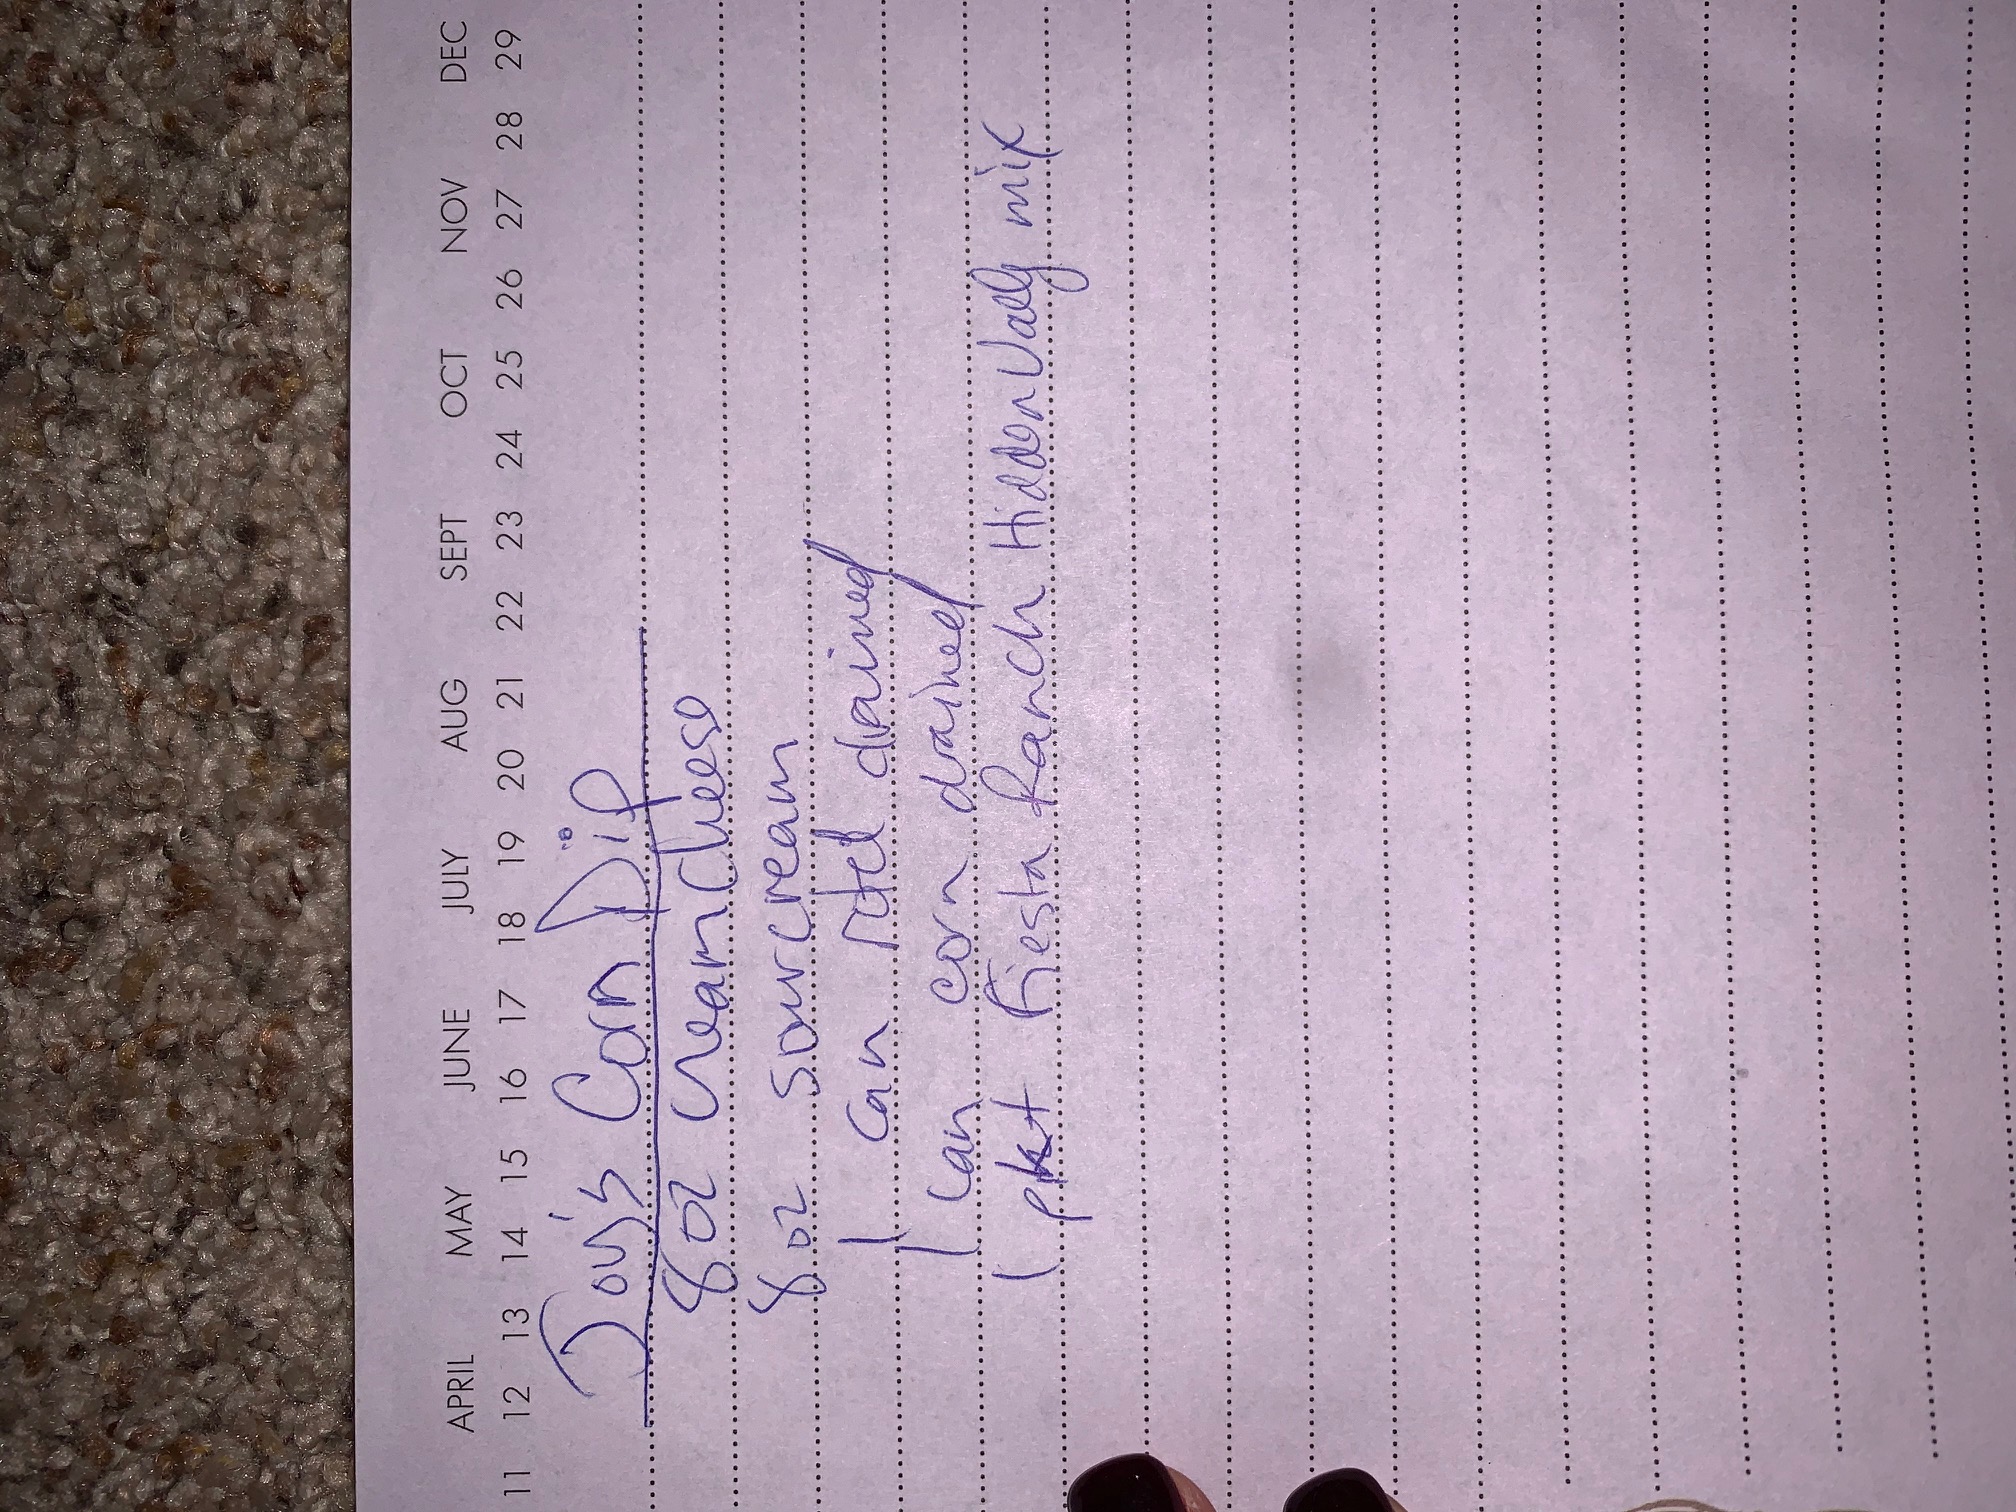 APRIL MAY JUNE JULY AUG SEPT OCT NOV DEC
11 12 13 14 15 16 17 18 19 20 21 22 23 24 25 26 27 28 29
Joy's Corn Dip
8 oz Cream Cheese
8 oz sour cream
1 can rotel drained
1 can corn drained
1 pkt Fiesta Ranch Hidden Vally mix